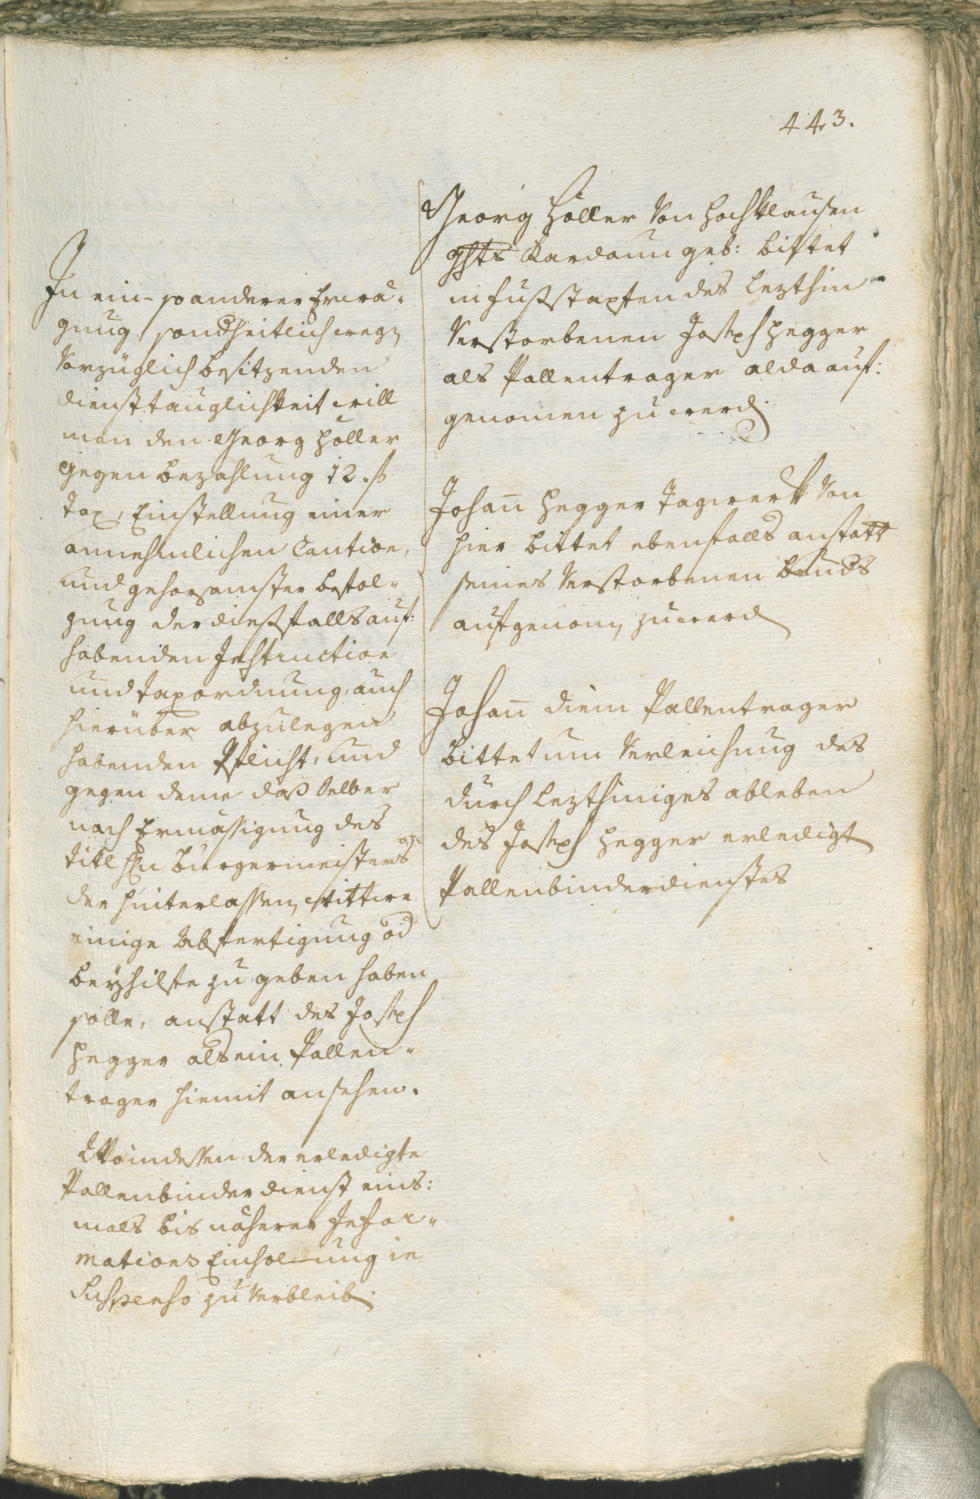 443.
Georg Holler von Hochklausen
ghts Kardaun geb: bittet
in Fußstapfen des lezthin
verstorbenen Joseph Hegger
als Pallentrager alda auf:
genomen zu werd.
Johan̄ Hegger Tagwerk von
hier bittet ebenfalls anstatt
seines verstorbenen
aufgenom̄ zu werd
Johan̄ Diem Pallentrager
bittet um Verleichung des
durch lezthiniges ableben
des Joseph Hegger erledigt
Pallenbinderdienstes
In ein- so anderer Erwä-
gnug, sondheitlich wegen
vorzüglich besitzenden
diensttauglichkeit will
man den Georg Holler
gegen bezahlung 12. f
Tax, Einstellung einer
annehmlichen Caution,
und gehorsamster befol-
gung der dießfalls auf:
habenden Instruction
und Taxordnung, auch
hierüber abzulegen
habenden Pflicht, und
gegen deme daß selber
nach Ermässigung des
titl Hn Burgermeisters
der hinterlassen wittwe
einige Abfertigung od
beyhilfe zu geben haben
solle, anstatt des Joseph
Hegger als ein Pallen-
trager hiemit ansehen.
Woindessen der erledigte
Pallenbinder dienst eins:
mals bis näherer Infor-
mations Einholung in
Suspenso zu verbleib.